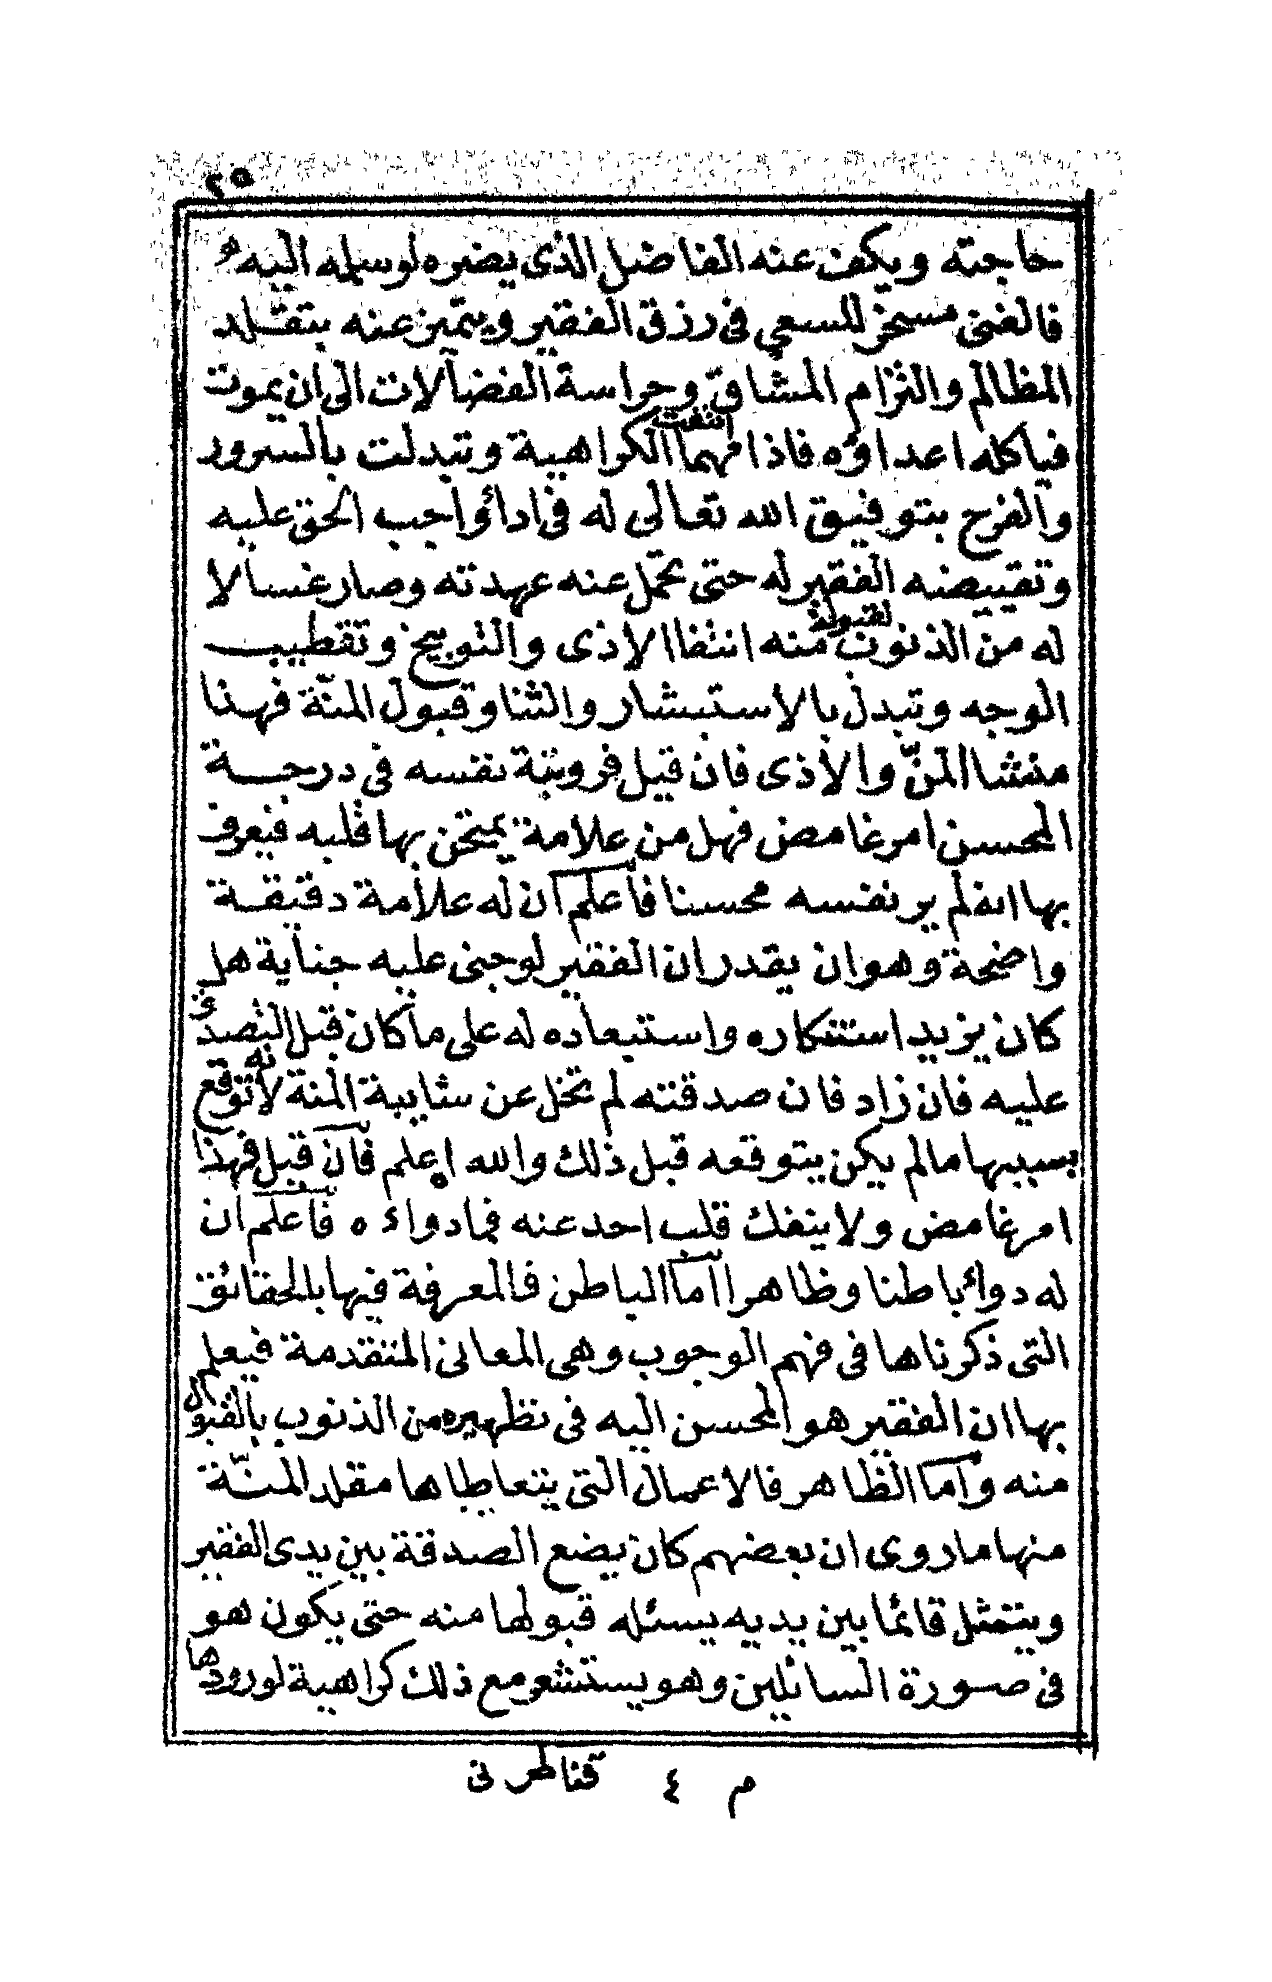 ٢٥
حاجته ويكف عنه الفاضل الذى يضره لوسلمه اليه
فالغنى مسخر للسعي فى رزق الفقير ويتميز عنه بتقلد
المظالم والتزام المشاقّ وحراسة الفضالات الى ان يموت
فياكله اعداؤه فاذا مهما انتفت الكراهية وتبدلت بالسرور
والفرح بتوفيق الله تعالى له فى اداء واجب الحق عليه
وتقييضه الفقير له حتى تحمل عنه عهدته وصار غسالا
له من الذنوب لقبوله منه انتفا الاذى والتوبيخ وتقطيب
الوجه وتبدل بالاستبشار والثنا وقبول المنّة فهذا
منشا المنّ والاذى فان قيل فرويتة نفسه فى درجة
المحسن امر غامض فهل من علامة يمتحن بها قلبه فيعرف
بها انه لم ير نفسه محسنا فاعلم ان له علامة دقيقة
واضحة وهو ان يقدر ان الفقير لو جنى عليه جناية هل
كان يزيد استنكاره واستبعاده له على ما كان قبل التصدق
عليه فان زاد فان صدقته لم تخل عن شايبة المنة لانه توقع
بسببها مالم يكن يتوقعه قبل ذلك والله اعلم فان قيل فهذا
امر غامض ولا ينفك قلب احد عنه فما دواءه فاعلم ان
له دواء باطنا وظاهرا اما الباطن فالمعرفة فيها بالحقائق
التى ذكرناها فى فهم الوجوب وهى المعانى المتقدمة فيعلم
بها ان الفقير هو المحسن اليه فى تطهيره من الذنوب بالقبول
منه واما الظاهر فالاعمال التى يتعاطاها مقلد المنّة
منها ماروى ان بعضهم كان يضع الصدقة بين يدى الفقير
ويتمثل قائما بين يديه يسئله قبولها منه حتى يكون هو
فى صورة السائلين وهو يستشعر مع ذلك كراهية لو ردها
م ٤ قناطر نى